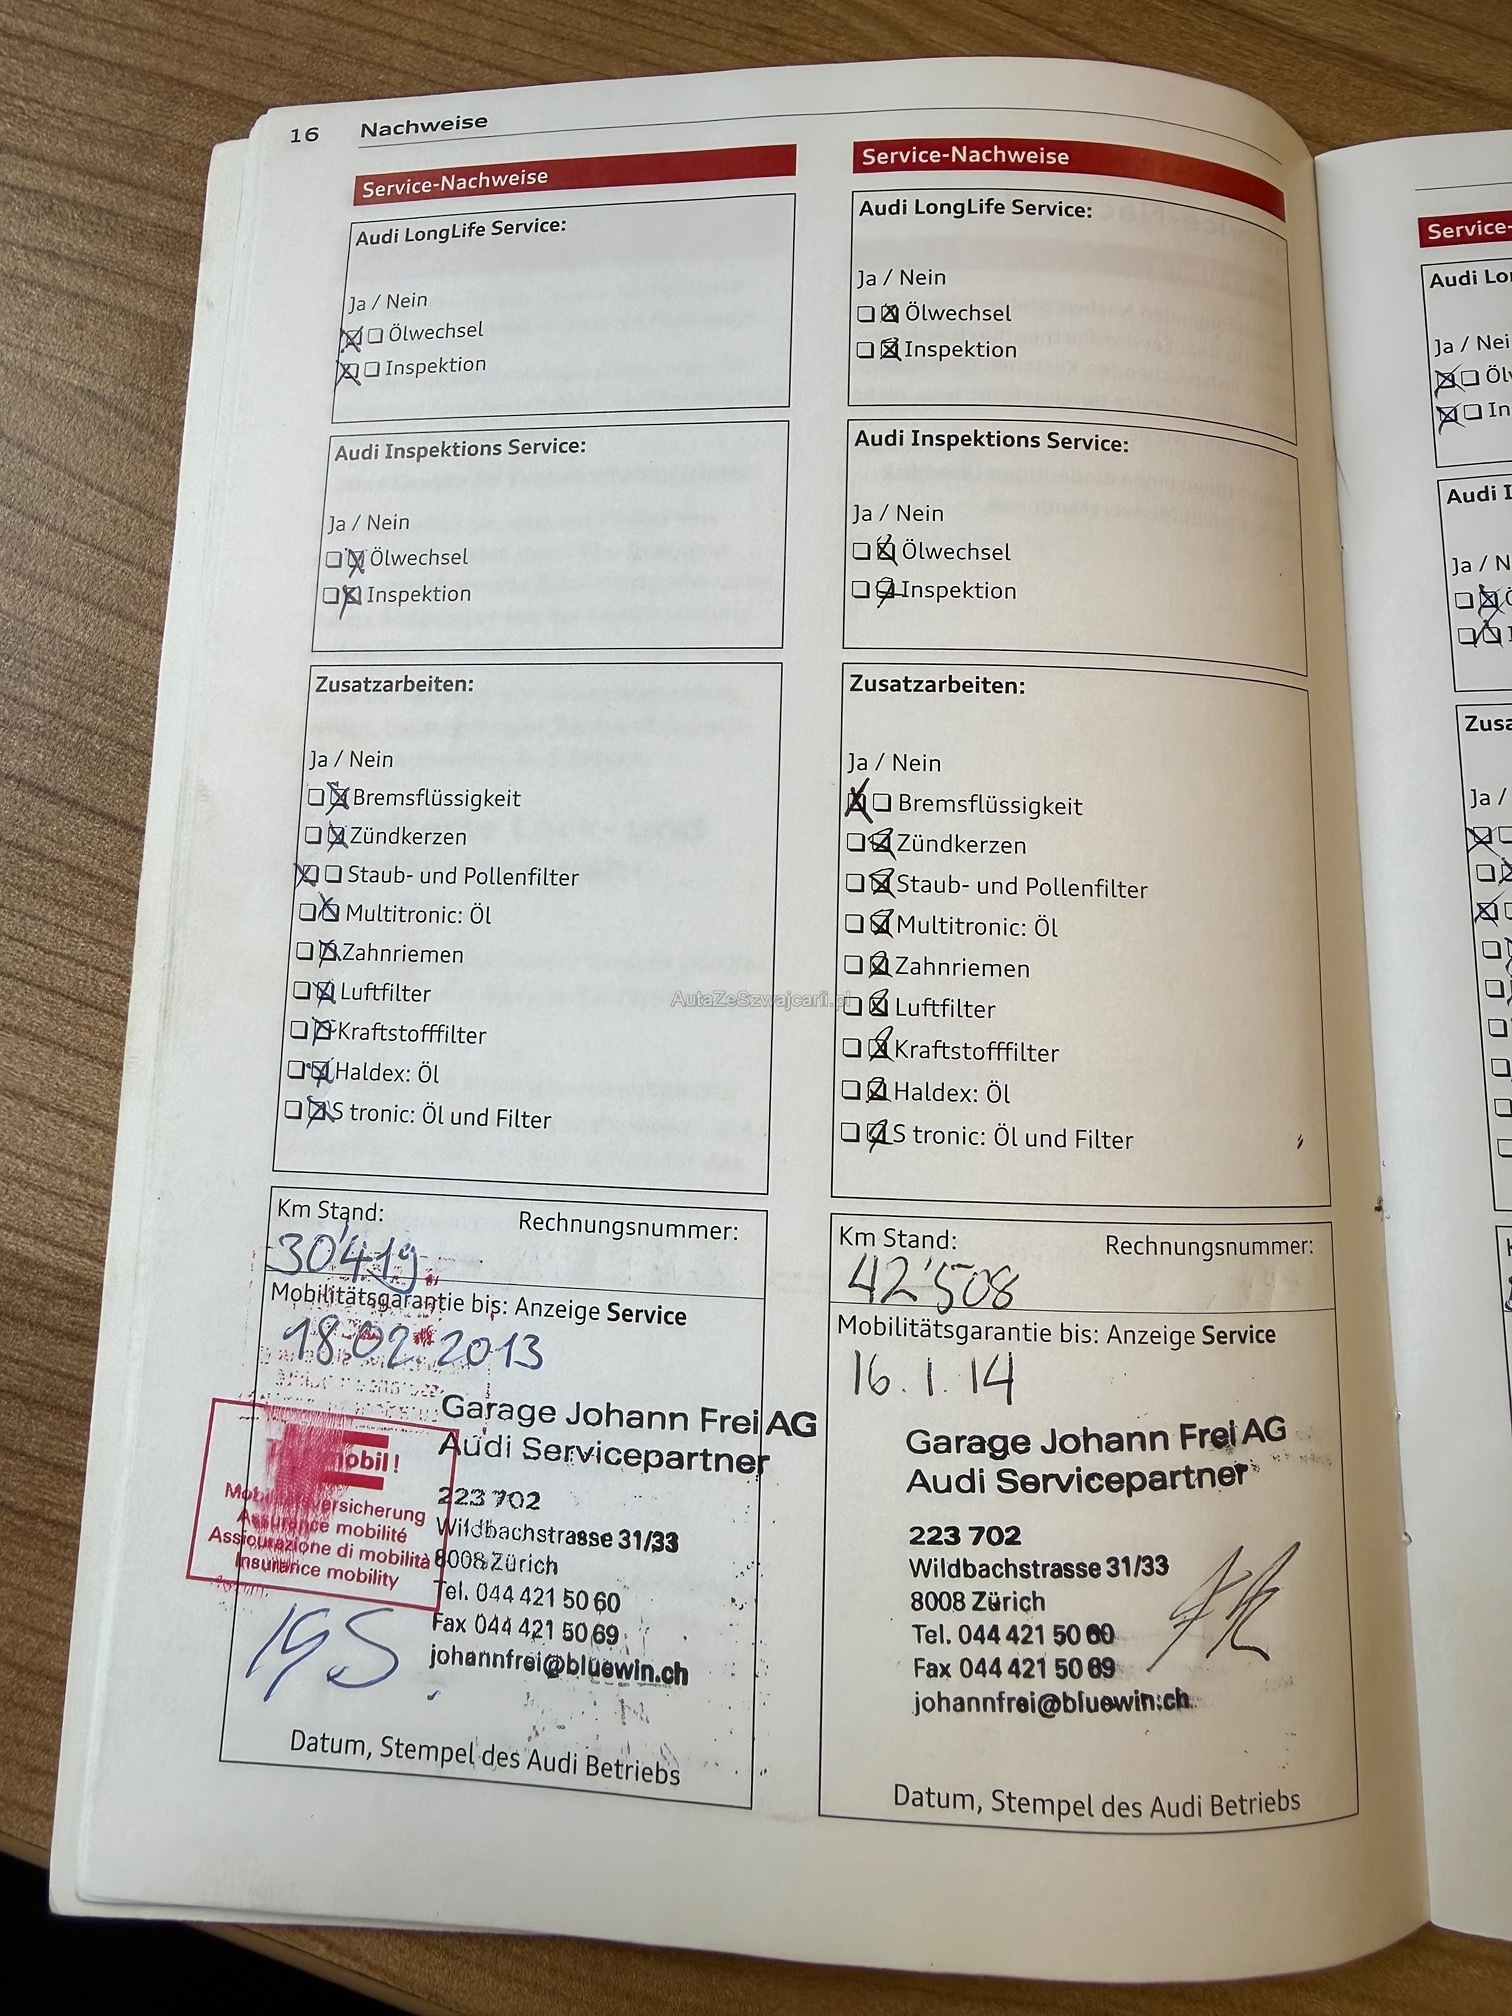 16 Nachweise
Service-Nachweise
Audi LongLife Service:
Ja / Nein
Ölwechsel
Inspektion
Audi Inspektions Service:
Ja / Nein
Ölwechsel
Inspektion
Zusatzarbeiten:
Ja / Nein
Bremsflüssigkeit
Zündkerzen
Staub- und Pollenfilter
Multitronic: Öl
Zahnriemen
Luftfilter
Kraftstofffilter
Haldex: Öl
S tronic: Öl und Filter
Km Stand: Rechnungsnummer:
30'419
Mobilitätsgarantie bis: Anzeige Service
18.02.2013
Garage Johann Frei AG
Audi Servicepartner
223 702
Wildbachstrasse 31/33
8008 Zürich
Tel. 044 421 50 60
Fax 044 421 50 69
johannfrei@bluewin.ch
Assurance mobilité
Assicurazione di mobilità
Insurance mobility
Datum, Stempel des Audi Betriebs
Service-Nachweise
Audi LongLife Service:
Ja / Nein
Ölwechsel
Inspektion
Audi Inspektions Service:
Ja / Nein
Ölwechsel
Inspektion
Zusatzarbeiten:
Ja / Nein
Bremsflüssigkeit
Zündkerzen
Staub- und Pollenfilter
Multitronic: Öl
Zahnriemen
Luftfilter
Kraftstofffilter
Haldex: Öl
S tronic: Öl und Filter
Km Stand: Rechnungsnummer:
42'508
Mobilitätsgarantie bis: Anzeige Service
16.1.14
Garage Johann Frei AG
Audi Servicepartner
223 702
Wildbachstrasse 31/33
8008 Zürich
Tel. 044 421 50 60
Fax 044 421 50 69
johannfrei@bluewin.ch
Datum, Stempel des Audi Betriebs
AutaZeSzwajcarii.pl
Service-
Audi
Ja /
Audi
Ja /
Ja /